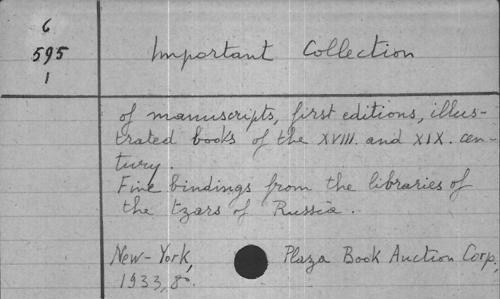 6
595
1
Important Collection
of manuscripts, first editions, illus-
trated books of the XVIII. and XIX. cen-
tury.
Fine bindings from the libraries of
the tzars of Russia.
New-York, Plaza Book Auction Corp.,
1933, 8°.